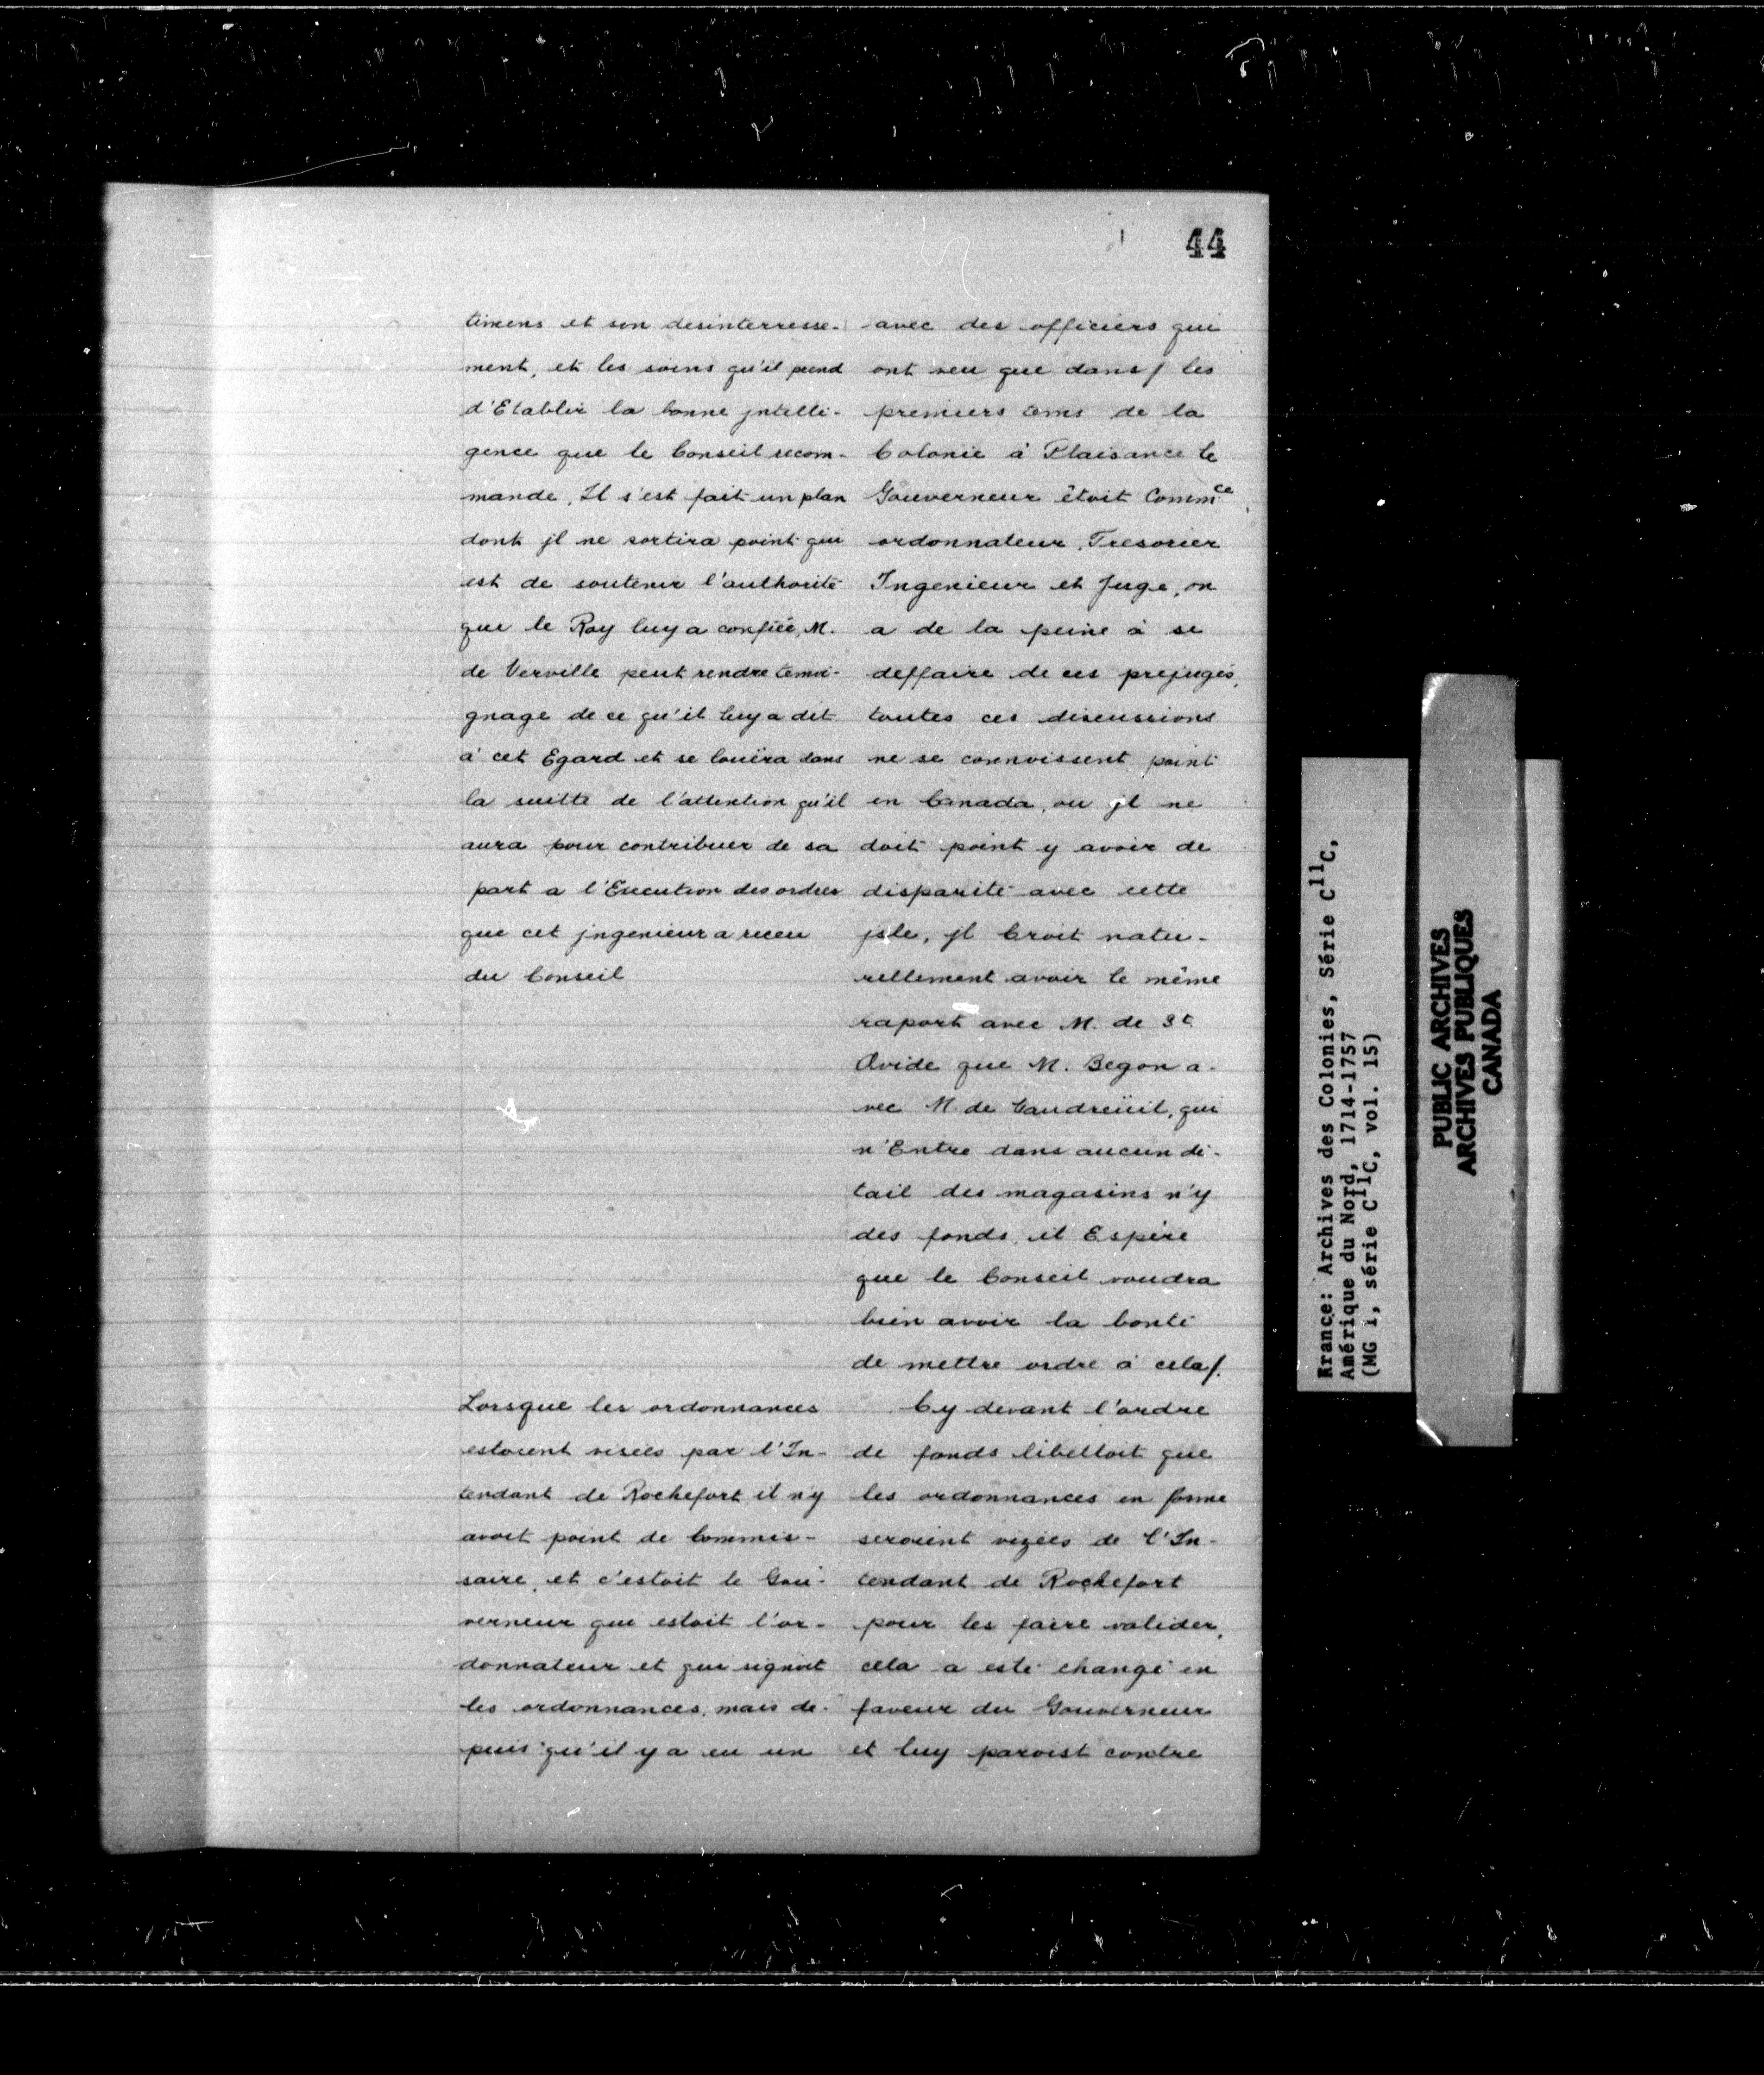 44
timens et son desinterresse-
ment, et les soins qu'il prend
d'Etablir la bonne jntelli-
gence que le Conseil recom-
mande. Il s'est fait un plan
dont jl ne sortira point qui
est de soutenir l'authorité
que le Roy luy a confiée, M.
de Verville peut rendre temoi-
gnage de ce qu'il luy a dit
à cet Egard et se louëra dans
la suitte de l'attention qu'il
aura pour contribuer de sa
part a l'Execution des ordres
que cet jngenieur a receu
du Conseil
avec des officiers qui
ont veu que dans / les
premiers tems de la
Colonie à Plaisance le
Gouverneur êtoit Comm.ce
ordonnateur, Tresorier
Ingenieur et Juge, on
a de la peine à se
deffaire de ces prejugés,
toutes ces discussions
ne se connoissent point
en Canada, ou jl ne
doit point y avoir de
disparité avec cette
jsle, jl Croit natu-
rellement avoir le même
raport avec M. de St.
Ovide que M. Begon a-
vec M. de Vaudreüil, qui
n'Entre dans aucun dé-
tail des magasins n'y
des fonds, il Espère
que le Conseil voudra
bien avoir la bonté
de mettre ordre à cela /.
Lorsque les ordonnances
estoient visées par l'In-
tendant de Rochefort il n'y
avoit point de Commis-
saire, et c'estoit le Gou-
verneur qui estoit l'or-
donnateur et qui signoit
les ordonnances, mais de-
puis qu'il y a eu un
Cy devant l'ordre
de fonds libelloit que
les ordonnances en forme
seroient vizées de l'In-
tendant de Rochefort
pour les faire valider,
cela a esté changé en
faveur du Gouverneur
et luy paroist contre
France: Archives des Colonies, Série C11C,
Amérique du Nord, 1714-1757
(MG 1, série C11C, vol. 15)
PUBLIC ARCHIVES
ARCHIVES PUBLIQUES
CANADA